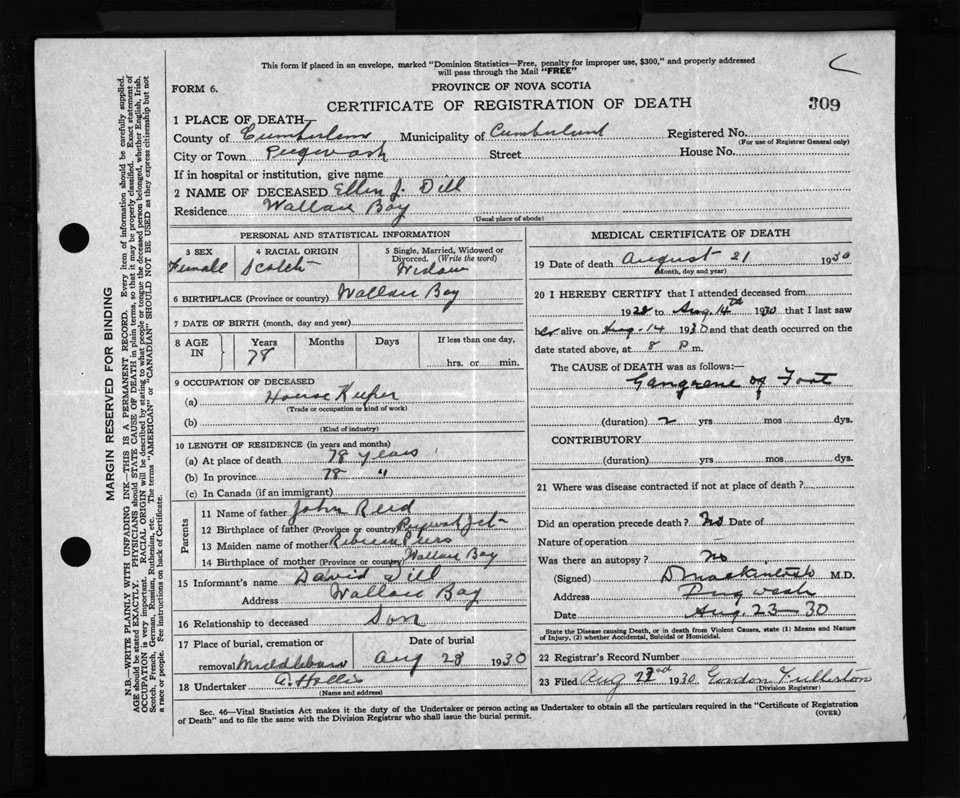 This form if placed in an envelope, marked "Dominion Statistics—Free, penalty for improper use, $300," and properly addressed
will pass through the Mail "FREE"
FORM 6.
PROVINCE OF NOVA SCOTIA
CERTIFICATE OF REGISTRATION OF DEATH
309
1 PLACE OF DEATH—
County of Cumberland Municipality of Cumberland Registered No.
(For use of Registrar General only)
City or Town Pugwash Street House No.
If in hospital or institution, give name
2 NAME OF DECEASED Ellen J. Dill
Residence Wallace Bay
(Usual place of abode)
PERSONAL AND STATISTICAL INFORMATION
3 SEX
Female
4 RACIAL ORIGIN
Scotch
5 Single, Married, Widowed or
Divorced. (Write the word)
Widow
6 BIRTHPLACE (Province or country) Wallace Bay
7 DATE OF BIRTH (month, day and year)
8 AGE IN
Years Months Days If less than one day,
78
hrs. or min.
9 OCCUPATION OF DECEASED
(a) House Keeper
(Trade or occupation or kind of work)
(b)
(Kind of industry)
10 LENGTH OF RESIDENCE (in years and months)
(a) At place of death 78 years
(b) In province 78 "
(c) In Canada (if an immigrant)
Parents
11 Name of father John Reed
12 Birthplace of father (Province or country)
13 Maiden name of mother Rebecca Peers
14 Birthplace of mother (Province or country) Wallace Bay
15 Informant's name David Dill
Address Wallace Bay
16 Relationship to deceased Son
17 Place of burial, cremation or
removal
Date of burial
Aug 28 1930
18 Undertaker A. Hollis
(Name and address)
MEDICAL CERTIFICATE OF DEATH
19 Date of death August 21 1930
(Month, day and year)
20 I HEREBY CERTIFY that I attended deceased from
1928 to Aug. 14th 1930 that I last saw
her alive on Aug. 14 1930 and that death occurred on the
date stated above, at 8 P m.
The CAUSE of DEATH was as follows:—
Gangrene of Foot
(duration) 2 yrs mos dys.
CONTRIBUTORY
(duration) yrs mos dys.
21 Where was disease contracted if not at place of death?
Did an operation precede death? No Date of
Nature of operation
Was there an autopsy? No
(Signed) D Mackintosh M.D.
Address Pugwash
Date Aug. 23—30
State the Disease causing Death, or in death from Violent Causes, state (1) Means and Nature
of Injury, (2) whether Accidental, Suicidal or Homicidal.
22 Registrar's Record Number
23 Filed Aug 23rd 1930 Gordon Fullerton
(Division Registrar)
Sec. 46—Vital Statistics Act makes it the duty of the Undertaker or person acting as Undertaker to obtain all the particulars required in the "Certificate of Registration
of Death" and to file the same with the Division Registrar who shall issue the burial permit.
(OVER)
MARGIN RESERVED FOR BINDING
N.B.—WRITE PLAINLY WITH UNFADING INK—THIS IS A PERMANENT RECORD. Every item of information should be carefully supplied.
AGE should be stated EXACTLY. PHYSICIANS should STATE CAUSE OF DEATH in plain terms, so that it may be properly classified. Exact statement of
OCCUPATION is very important. RACIAL ORIGIN will be described by stating to what people or tongue the deceased person belonged, whether English, Irish,
Scotch, French, German, Russian, Ruthenian, etc. The terms "AMERICAN" or "CANADIAN" SHOULD NOT BE USED as they express citizenship but not
a race or people. See instructions on back of Certificate.